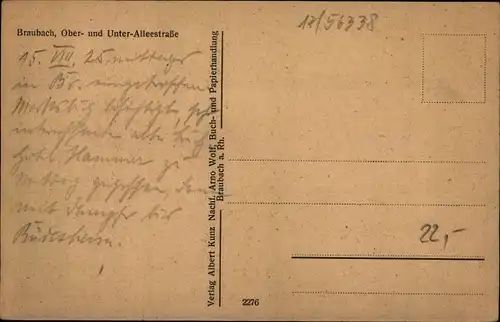 Braubach, Ober- und Unter-Alleestraße
17/56338
15. VIII. 25 mittags
in Br. eingetroffen
Marksburg besichtigt, sehr
alte
zu
Mittag gegessen, dann
mit Dampfer bis
Rüdesheim.
Verlag Albert Kunz Nachf. Arno Wolf, Buch- und Papierhandlung
Braubach a. Rh.
22,-
2276